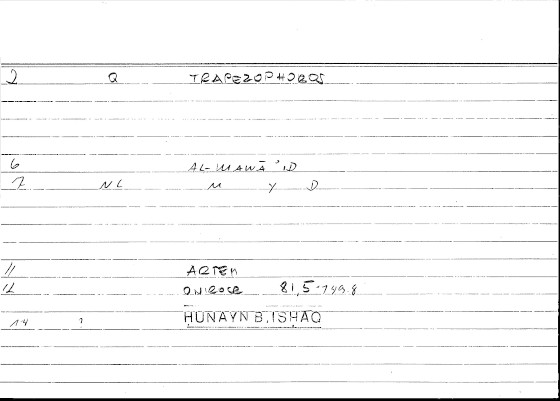 2 Q TRAPEZOPHOROS
6 AL-MAWĀ'ID
7 NL M Y D
11 ARTEM
12 ONIROCR 81,5 -149.8
14 1 HUNAYN B. ISHAQ